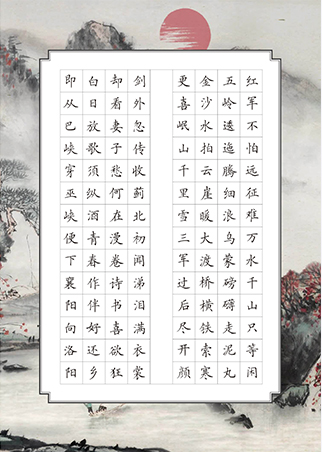 红军不怕远征难万水千山只等闲
五岭逶迤腾细浪乌蒙磅礴走泥丸
金沙水拍云崖暖大渡桥横铁索寒
更喜岷山千里雪三军过后尽开颜
剑外忽传收蓟北初闻涕泪满衣裳
却看妻子愁何在漫卷诗书喜欲狂
白日放歌须纵酒青春作伴好还乡
即从巴峡穿巫峡便下襄阳向洛阳